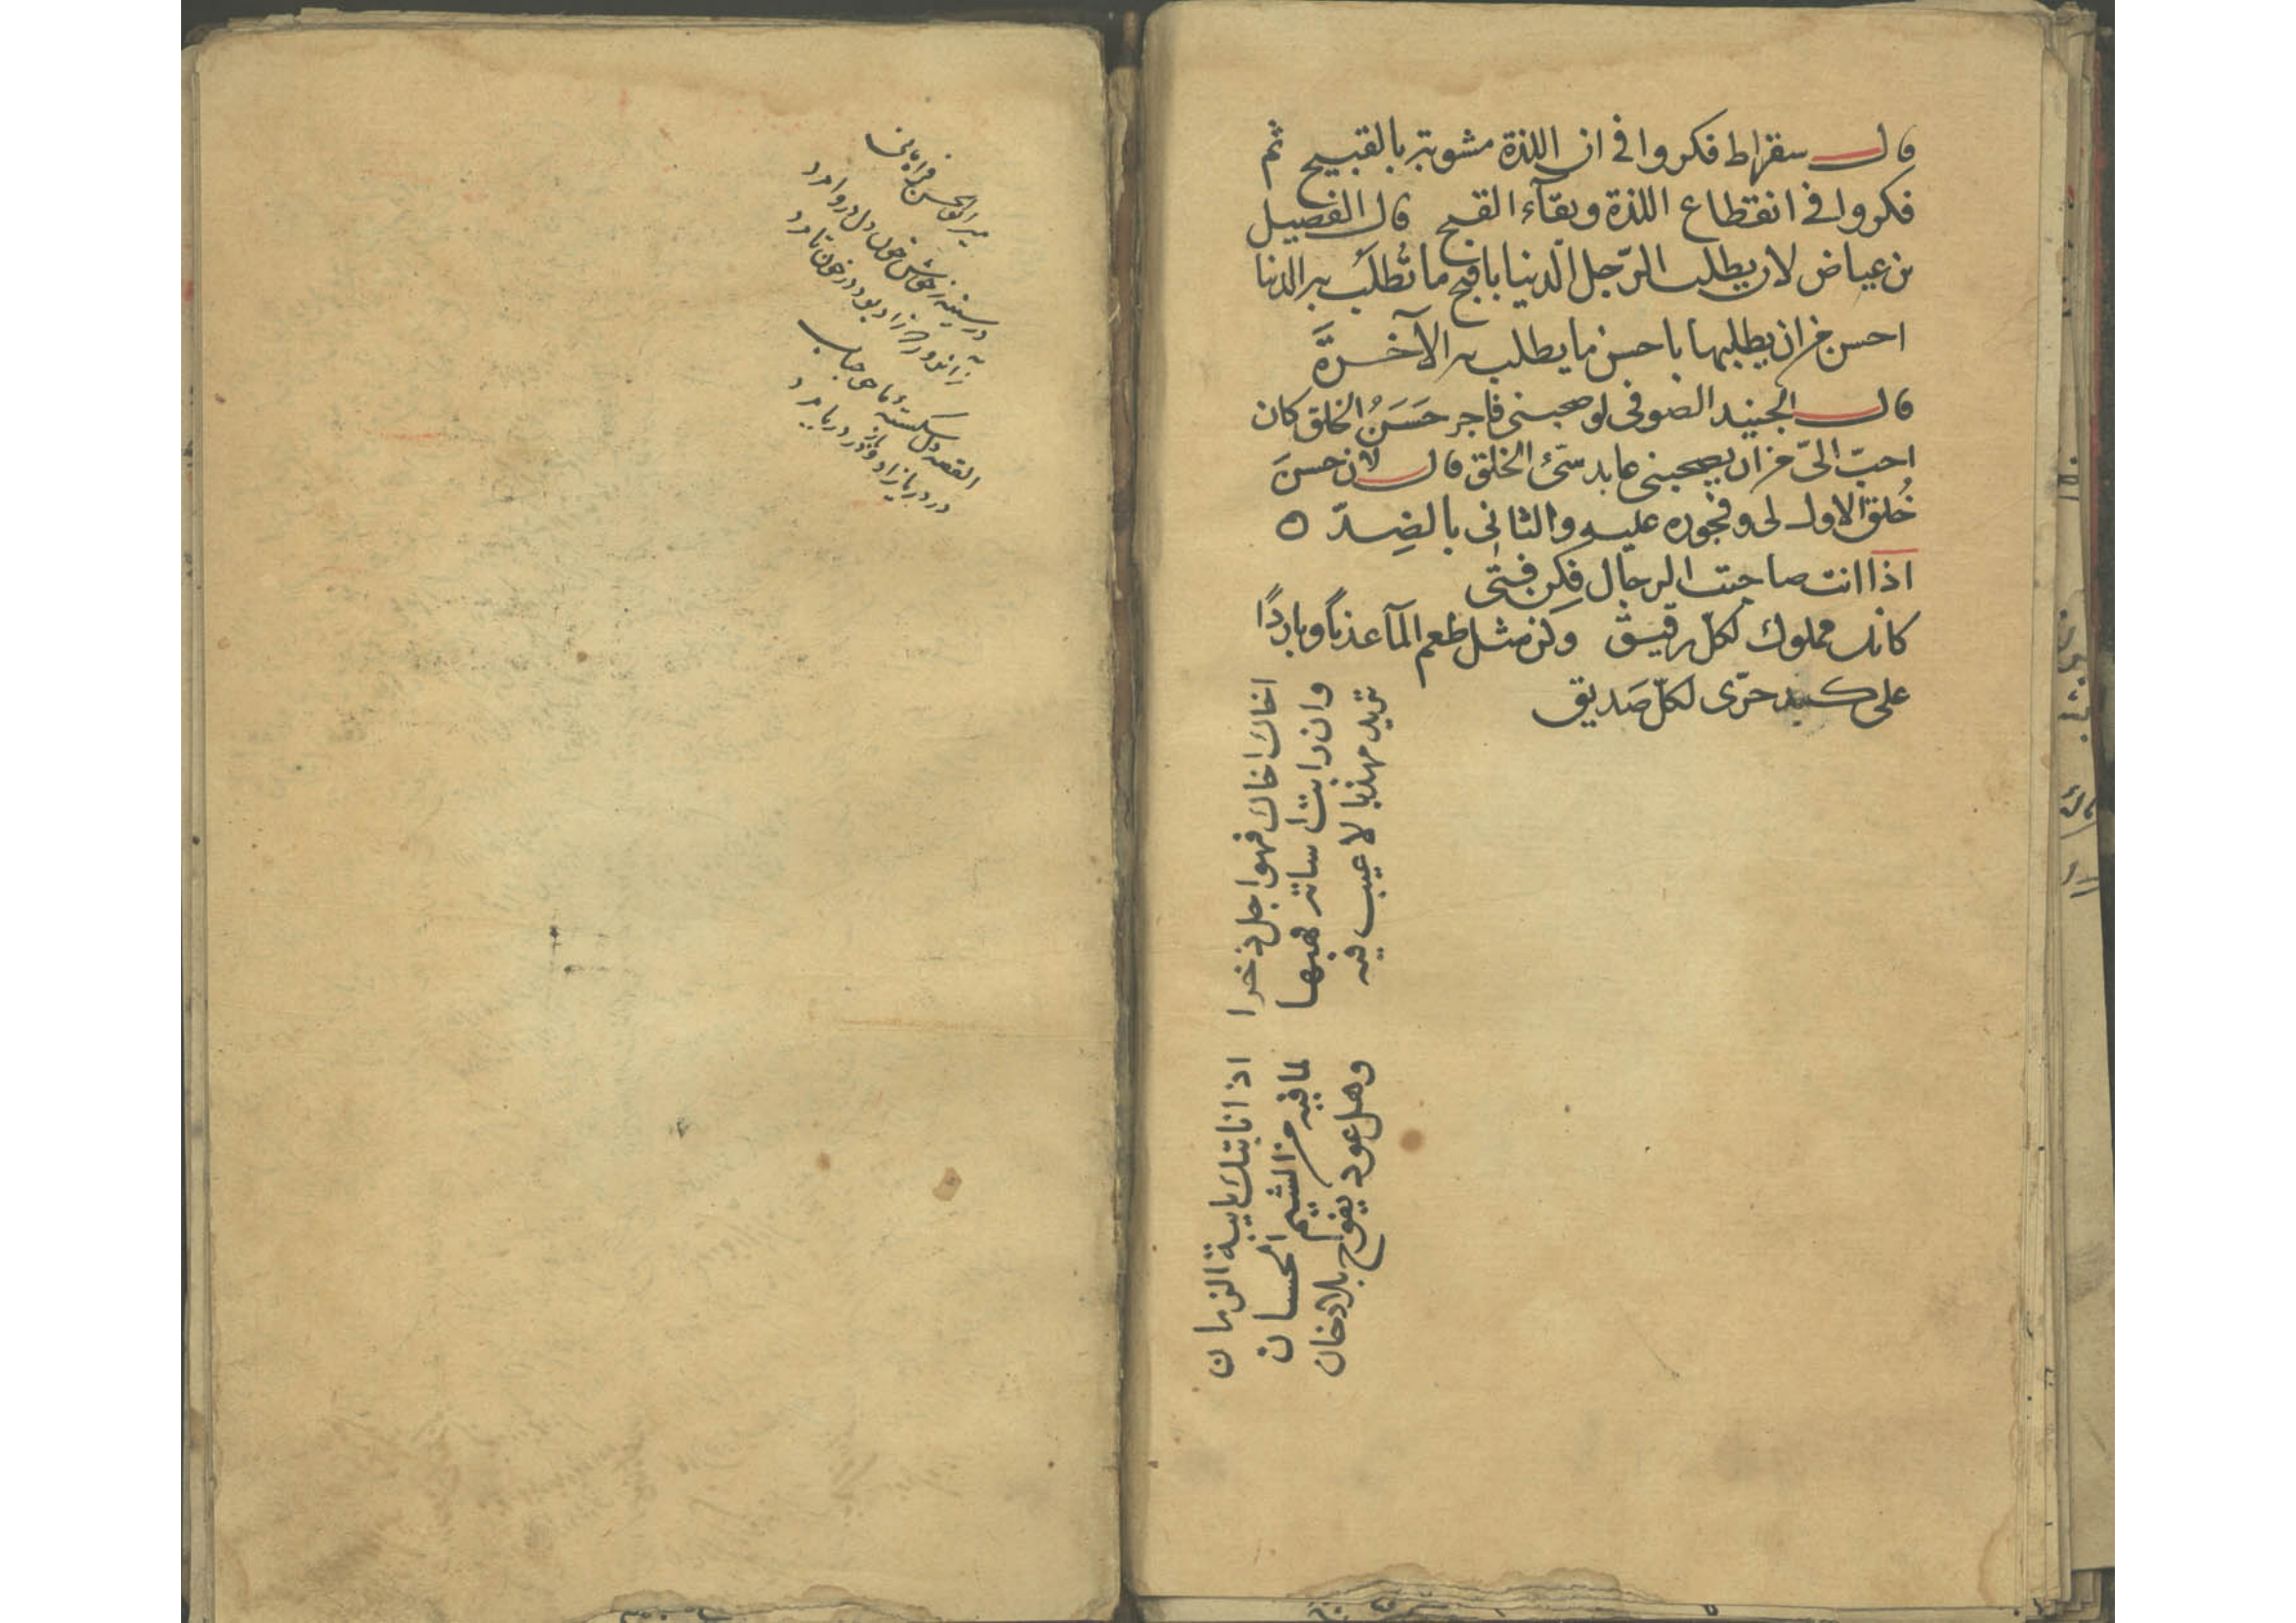 قال سقراط فكروا في ان اللذة مشوبة بالقبيح ثم
فكروا في انقطاع اللذة وبقآء القبح قال الفضيل
بن عياض لان يطلب الرّجل الدنيا باقبح ما تُطلَب به الدنيا
احسن من ان يطلبها باحسن ما يطلب به الآخرة
قال الجنيد الصوفى لو صحبنى فاجر حَسَنُ الخلق كان
احبّ الىّ من ان يصحبنى عابد سّىئ الخلق قال لان حسن
خُلق الاول لى وفجوره عليه والثانى بالضِدّ ه
اذا انت صاحبت الرجال فكن فتى
كانك مملوك لكلّ رفيق وكن مثل طعم المآ عذبًا وباردًا
على كبد حرّى لكلّ صَديق
اخاك اخاك فهو اجل ذخرا اذا نابتك نايبة الزمان
وان رابت اساته فهبها لما فيه من الشيم الحسان
تريد مهذبا لا عيب فيه وهل عود يفوح بلا دخان
مير ابو الحسن فراهانى
در سينه ز خون دل
زاد بود در خون تا مرد
القصه دل شكسته ما
در دريا زاد و در دريا مرد